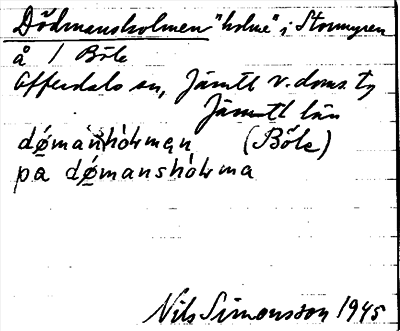 Dödmansholmen "holme" i Stormyren
å 1 Böle
Offerdals sn, Jämtl v. doms. tg
Jämtl län
dø̱mànhòɫmąn (Böle)
pa dø̱manshòɫma
Nils Simonsson 1945